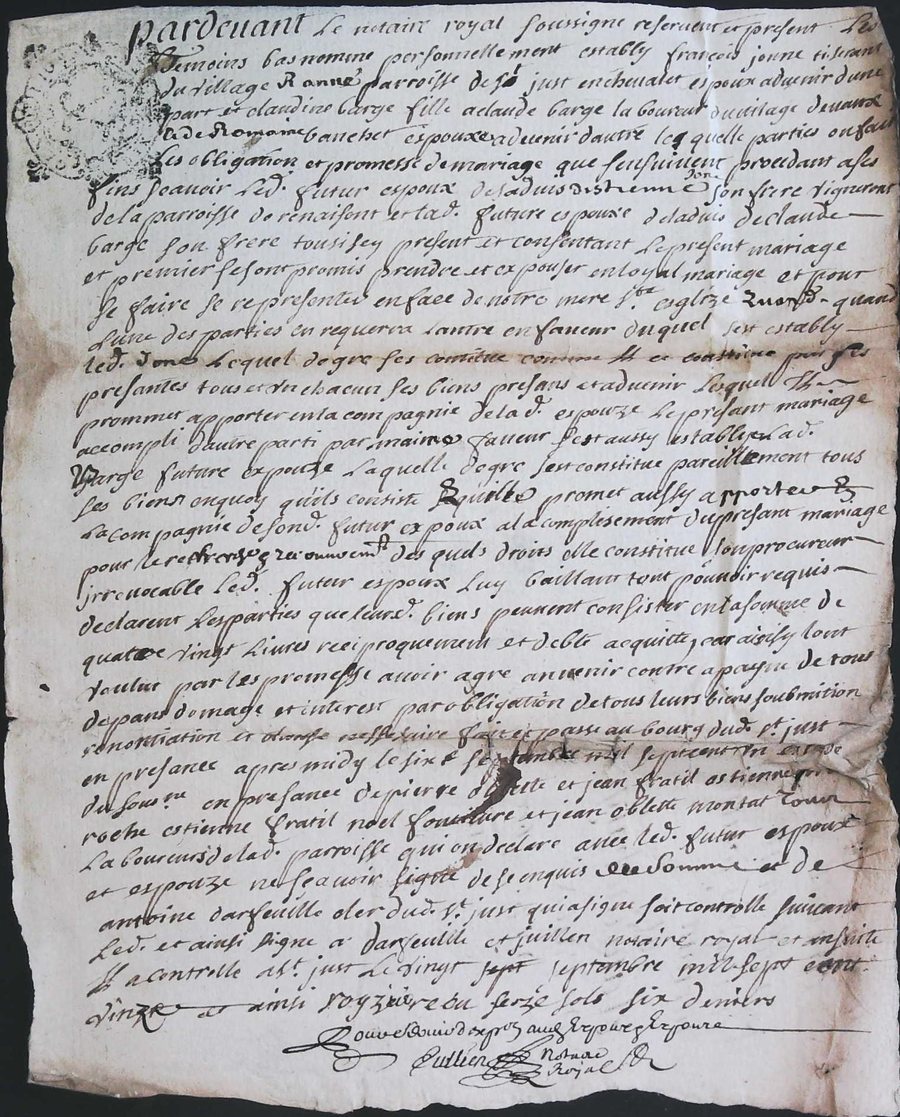 pardevant Le notaire royal soussigne reservent et present Les
temoins bas nomme personnellement establÿ françois jonne tiseran
du village Ranne parroisse de St just enchevalet espoux advenir dune
part et claudine barge fille a claude barge laboureur du vilage devaux
et de Romaine banchet espouxe advenir dautre les quelle parties on fait
Les obligation et promesse demariage que sensuivent procedant a ses
fins scavoir led. futur espoux deladvis destienne jone son frere vigneront
de la parroisse de renaisont et lad. future espouxe deladvis declaude
barge son frere tousisey present et consentant Le present mariage
et premier se sont promis prendre et expouser en loyal mariage et pour
se faire se representer enface de notre mere ste esglize quand
Lune des parties en requerra Lautre en faveur duquel sest establÿ
led. Jone Lequel de gre ses comme et constitue par ses
presantes tous et un chacun ses biens presans et advenir Lesquel Il
prommet apporter en la compagnie delad. espouze Le présant mariage
accompli dautre parti par maime faveur sest aussy establye Lad.
Barge future expouse Laquelle degre sest constitue pareillement tous
ses biens enquoy quils consiste promet aussy apporter En
La compagnie de sond. futur expoux a la complisement du présant mariage
pour le des quels droits elle constitue son procureur
jrrevocable led. futur espoux Luy baillant tout pouvoir requis
declarent Lesparties que leurd. biens peuvent consister en la somme de
quatre vingt Livres reciproquement et debte acquitte, car ainsisy lont
voulut par Les promesse avoir agre anvenir contre a payne de tous
depans domage et interest par obligation de tous leurs biens soubmition
renontiation et clause nessessaire fait et passe au bourg dud. st. just
en presance apres midy le sixe septambre mil septcent
en presance depierre oblette et jean fratil estienne
roche estienne fratil noel et jean oblette montat
Laboureurs delad. parroisse qui on declare avec led. futur espoux
et espouze ne scavoir signe de se enquis de somme et de
antoine darfeuille clerc dud. st. just qui a signe soit controlle suivant
Led. et ainsi signe a darfeuille et jullien notaire royal et ensuite
Il a controlle a st. just Le vingt sept septembre mil sept cent
vingt et ainsi reçu seize sols six deniers
espouze
Jullien Notaire
Royal